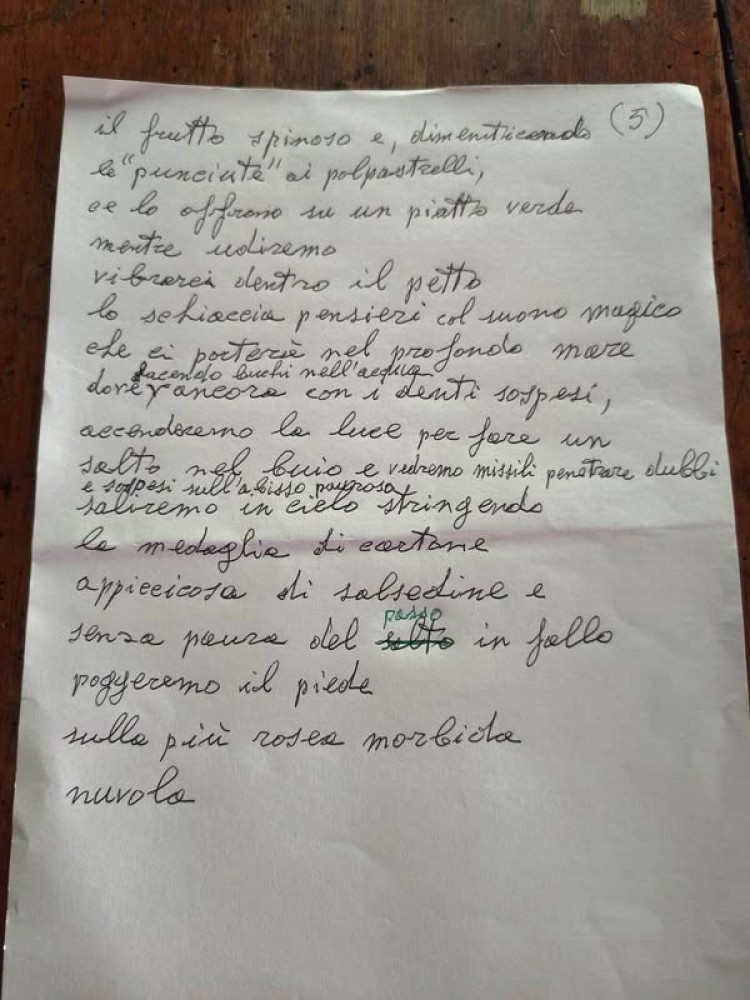 (5)
il frutto spinoso e, dimenticando
le "punciute" ai polpastrelli,
ce lo offrono su un piatto verde
mentre udiremo
vibrare dentro il petto
lo schiaccia pensieri col suono magico
che ci porterà nel profondo mare
facendo buchi nell'acqua
dove ancora con i denti sospesi,
accenderemo la luce per fare un
salto nel buio e vedremo missili penetrare dubbi
e sospesi sull'abisso pauroso
saliremo in cielo stringendo
la medaglia di cartone
appiccicosa di salsedine e
passo
senza paura del salto in fallo
poggeremo il piede
sulla più rosea morbida
nuvola